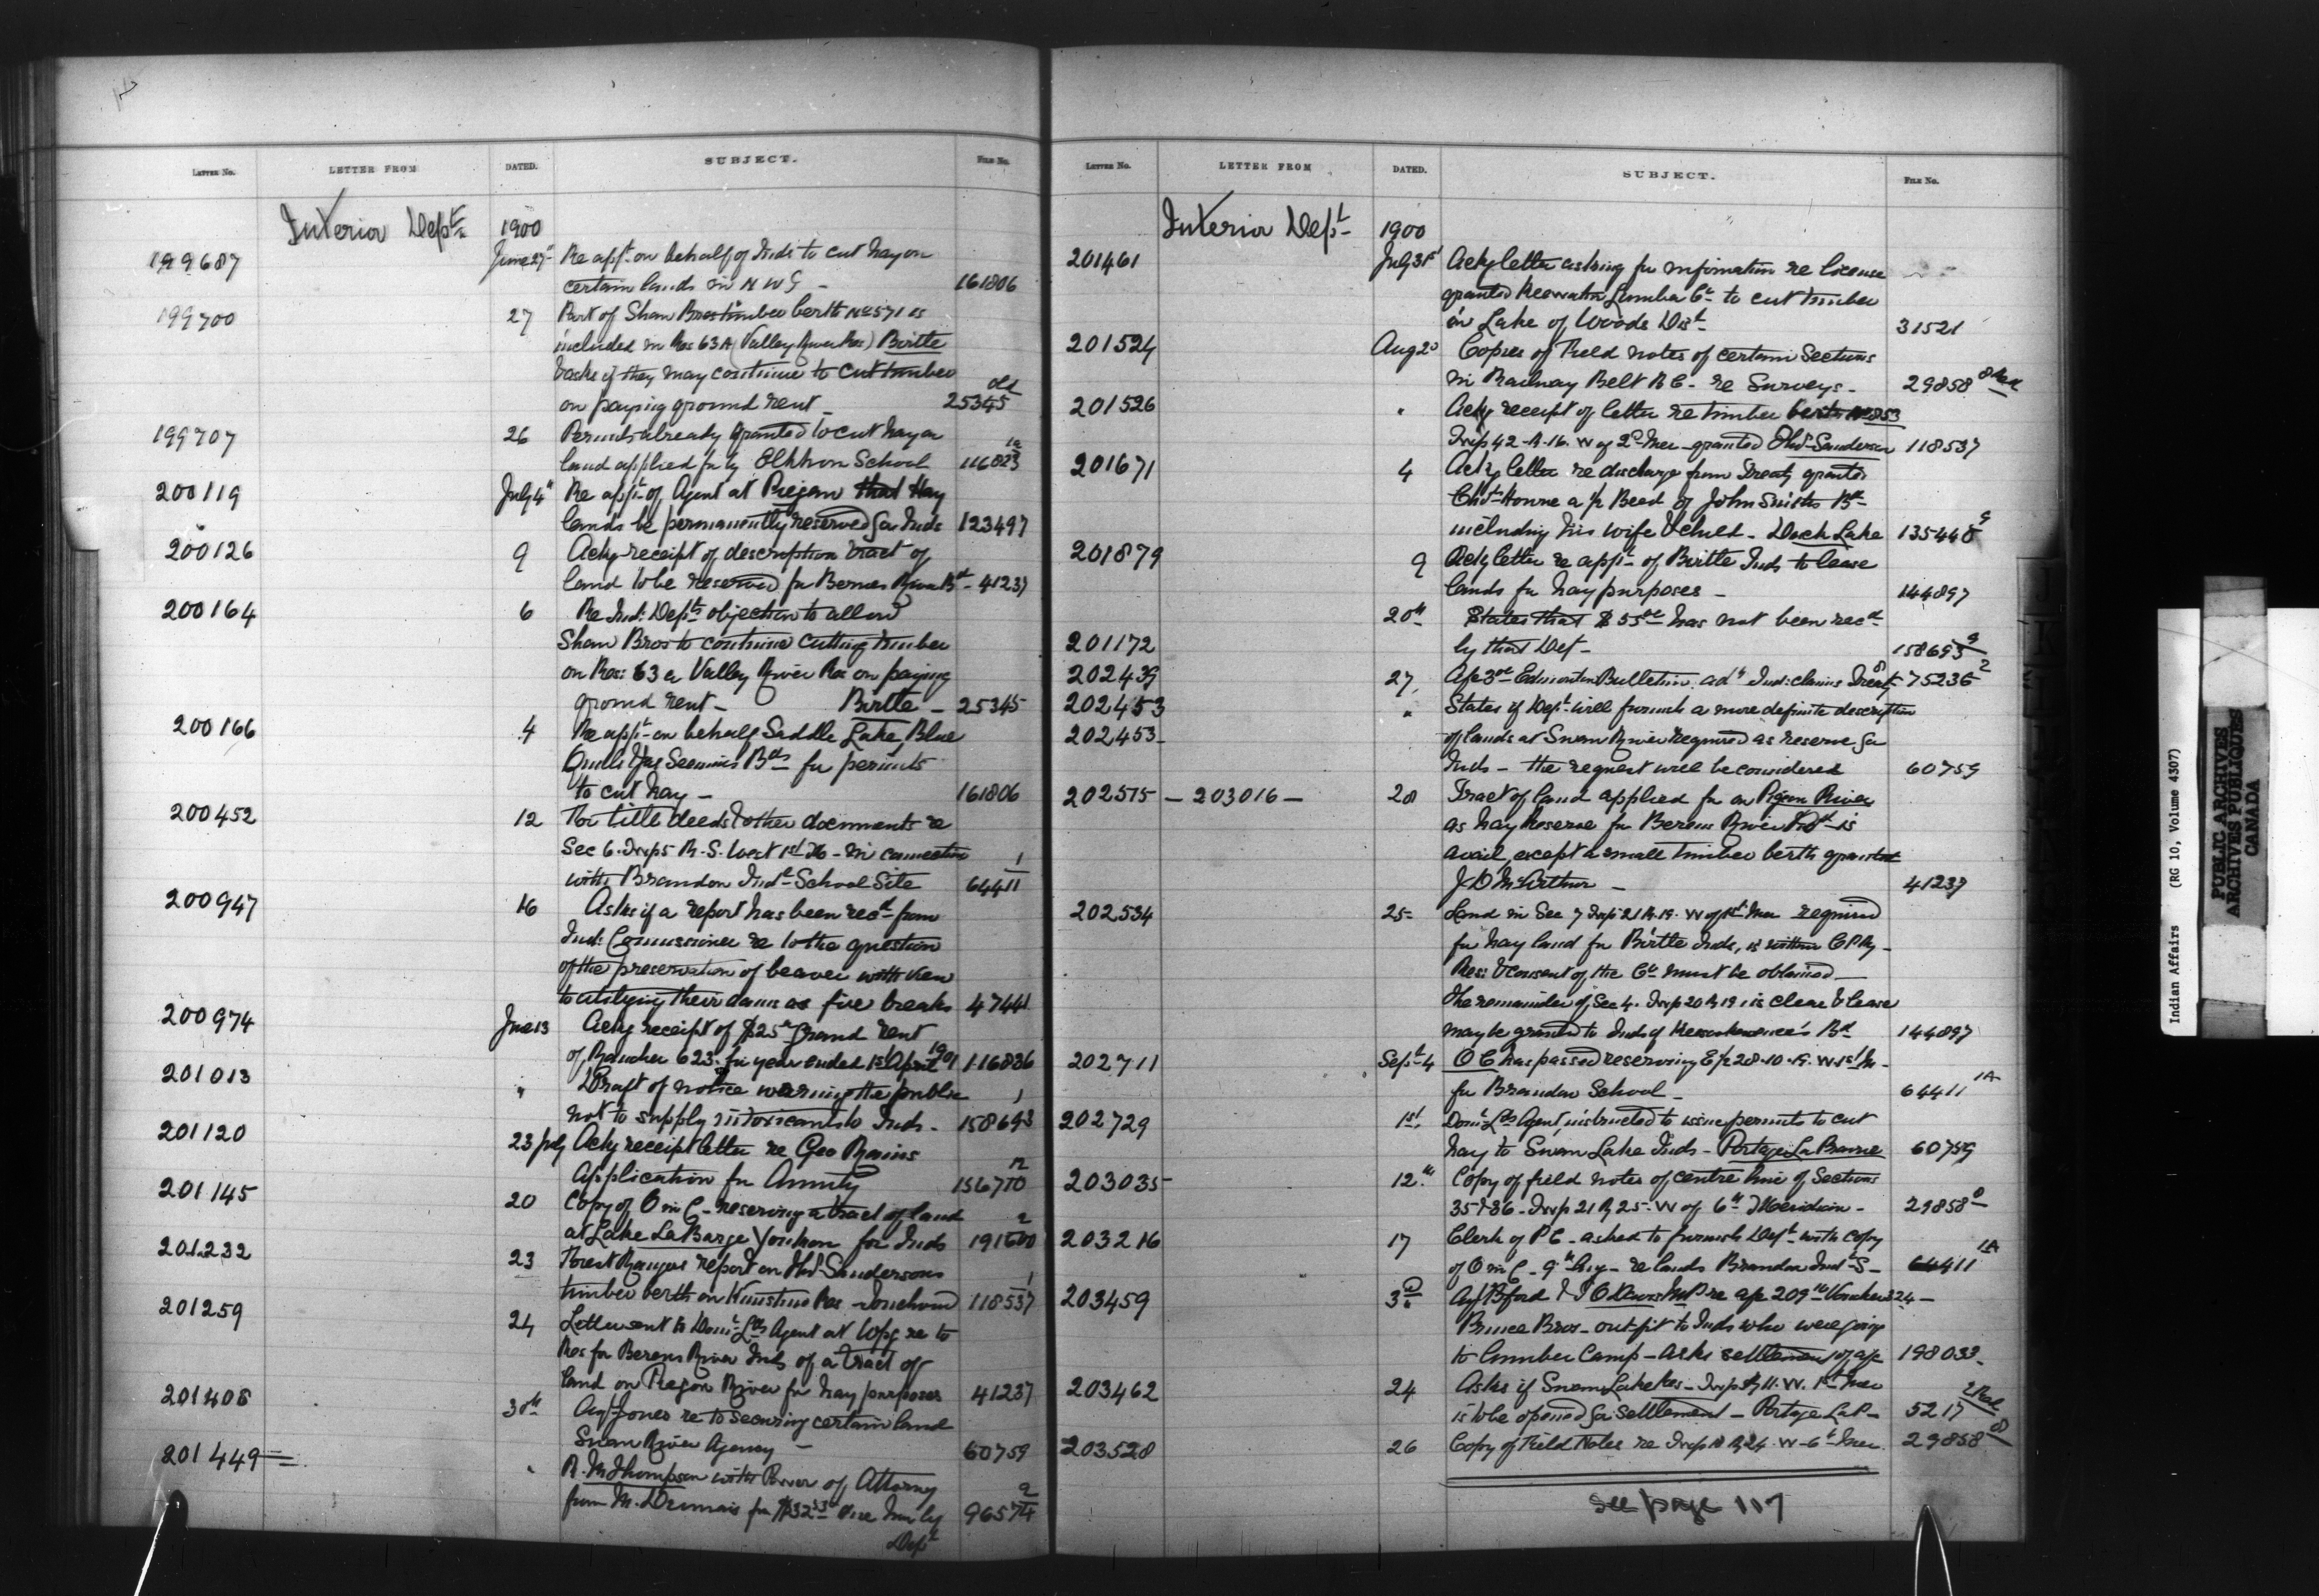 LETTER No. LETTER FROM DATED. SUBJECT. FILE No.
Interior Dept. 1900
199687 June 27 Re appt. on behalf of Inds to cut hay on
certain lands in N W G - 161806
199700 27 Part of Shaw Bros timber berth No 571 is
included in Res 63A (Valley River Res) Birtle
& asks if they may continue to cut timber
on paying ground rent - 25345 old
199707 26 Permits already granted to cut hay on
land applied for by Elkhorn School 116823 1a
200119 July 4 Re appt. of Agent at Piegan that Hay
lands be permanently reserved for Inds 123497
200126 9 Ackg receipt of description tract of
land to be reserved for Berens River Bd - 41237
200164 6 Re Ind: Dept. objection to allow
Shaw Bros to continue cutting timber
on Res: 63 a Valley River Res on paying
ground rent - Birtle - 25345
200166 4 Re appt - on behalf Saddle Lake, Blue
Quills & Jas Seenum's Bds for permits
to cut hay - 161806
200452 12 For title deeds & other documents re
Sec 6. Twp 5 R. S. West 1st M - in connection
with Brandon Indl School Site 64411 1
200947 16 Asks if a report has been recd from
Ind: Commissioner re to the question
of the preservation of beaver with view
to utilizing their dams as fire breaks 47441
200974 June 13 Ackg receipt of $25 Ground rent
of Rancher 623. for year ended 1st April 1901 116836
201013 " Draft of notice warning the public
not to supply intoxicants to Inds. 158693 1
201120 23 July Ackg receipt letter re Geo Rains
Application for Annuity 156710 12
201145 20 Copy of O in C - reserving a tract of land
at Lake La Barge Youkon for Inds 191600 2
201232 23 Forest Rangers report on Hd. Sandersons
timber berth on Kinistino Res - 118537 1
201259 24 Letter sent to Domn Lds Agent at Wpg re to
Res for Berens River Inds of a tract of
land on Pigeon River for hay purposes 41237
201408 30th Augt Jones re to securing certain land
Swan River Agency - 60759
201449 " R. M Thompson with Power of Attorney
from M. for $32 96574 2
Dept
LETTER No. LETTER FROM DATED. SUBJECT. FILE No.
Interior Dept 1900
201461 July 31st Ackg letter asking for information re license
granted Keewatin Lumber Co to cut timber
in Lake of Woods Dist - 31521
201524 Aug 2d Copies of Field notes of certain Sections
in Railway Belt B C - re Surveys - 29858
201526 " Ackg receipt of letter re timber berth No 853
Twp 42 - R. 16. W of 2d Mer - granted Hd. Sanderson 118537
201671 4 Ackg letter re discharge from Treaty granted
of John Smiths Bd -
including his wife & child - Duck Lake 135446
201879 9 Ackg letter re appt - of Birtle Inds to lease
lands for hay purposes - 144897
201172 20th States that $55 has not been recd
by that Dept - 158693
202439 27 A/c 3 Edmonton Bulletin adv Ind: claims Treaty 8 75236 2
202453 " States if Dept. will furnish a more definite description
202453 - of lands at Swan River required as reserve for
Inds - the request will be considered 60759
202575 - 203016 - 28 Tract of land applied for on Pigeon River
as hay Reserve for Berens River Bd - is
avail, except a small timber berth granted
J. D McArthur - 41237
202534 25 - Land in Sec 7 Twp 21 R. 19. W of 1st Mer required
for hay land for Birtle Inds, is within C P Ry -
Res: & consent of the Co must be obtained -
the remainder of Sec 4. Twp 20 R 19, is clear & lease
may be granted to Inds of Bd 144897
202711 Sept 4 O C has passed reserving E ½ 28. 10. 19. W 1st M -
for Brandon School - 64411 1A
202729 1st Domn Lds Agent, instructed to issue permits to cut
hay to Swan Lake Inds - Portage La Prairie 60759
203035 12th Copy of field notes of centre line of Sections
35 & 36 - Twp 21 R 25 - W of 6th Meridian - 29858 8
203216 17 Clerk of P C - asked to furnish Dept - with copy
of O in C - 9th Aug - re lands Brandon Indl S - 64411 1A
203459 3d Agt Bford & T O Davis M P re a/c 209 Voucher 324 -
Prince Bros - outfit to Inds who were going
to lumber Camp - Asks settlement of a/c 198033
203462 24 Asks if Swan Lake Res - Twp R 11. W. 1st Mer
is to be opened for settlement - Portage La P - 5217
203528 26 Copy of Field Notes re Twp R 24. W - 6th Mer. 29858 8
see page 117
Indian Affairs (RG 10, Volume 4307)
PUBLIC ARCHIVES
ARCHIVES PUBLIQUES
CANADA